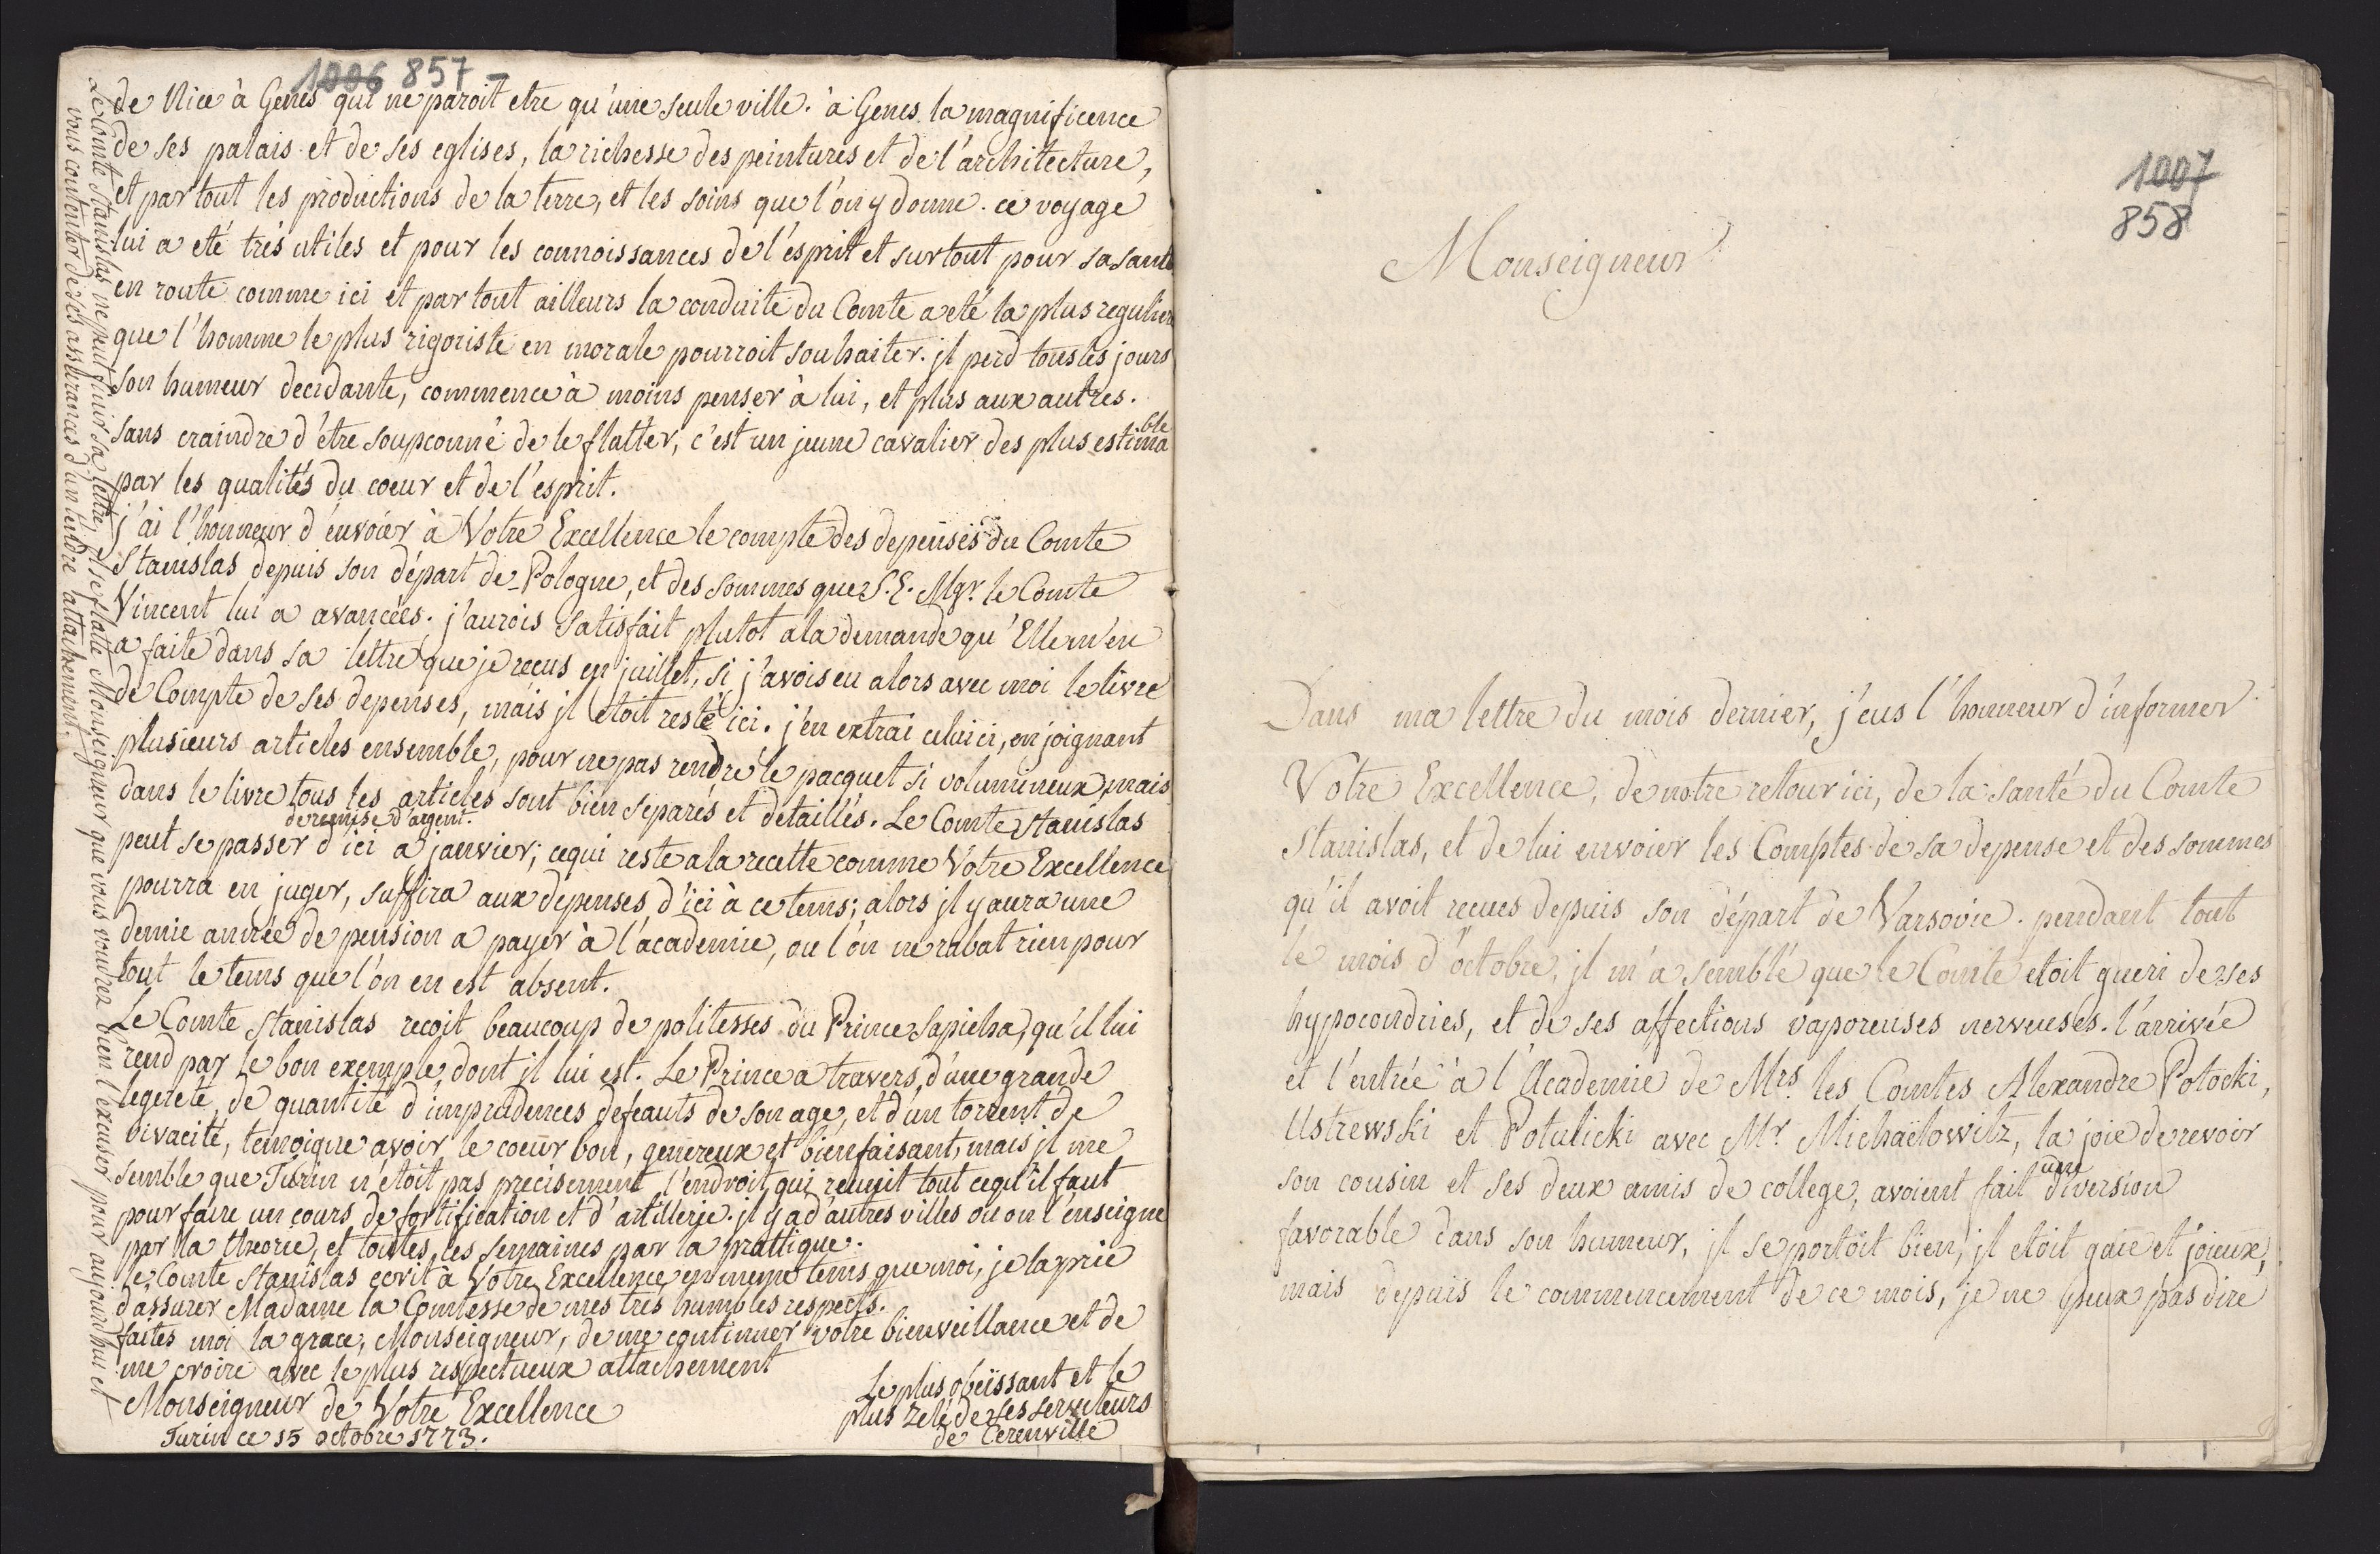 1006 857
de Nice à Genes qui ne paroit etre qu'une seule ville. à Genes la magnificence
de ses palais et de ses eglises, la richesse des peintures et de l'architecture,
et par tout les productions de la terre, et les soins que l'on y donne. ce voyage
lui a eté trés utiles et pour les connoissances de l'esprit et surtout pour sa santé
en route comme ici et par tout ailleurs la conduite du Comte a eté la plus reguliere
que l'homme le plus rigoriste en morale pourroit souhaiter. jl perd tous les jours
son humeur decidante, commence à moins penser à lui, et plus aux autres.
sans craindre d'étre soupconné de le flatter, c'est un jeune cavalier des plus estimable
par les qualités du coeur et de l'esprit.
j'ai l'honneur d'envoier à Votre Excellence le compte des depenses du Comte
Stanislas depuis son départ de Pologne, et des sommes que S. E. Mgr. le Comte
Vincent lui a avancées. j'aurois satisfait plutot a la demande qu'Elle m'en
a faite dans sa lettre que je recus en juillet, si j'avois eu alors avec moi le livre
de Compte de ses depenses, mais jl étoit resté ici. j'en extrai celui ci, en joignant
plusieurs articles ensemble, pour ne pas rendre le pacquet si volumineux, mais
dans le livre tous les articles sont bien separés et detaillés. Le Comte Stanislas
de remise d'argent.
peut se passer d'ici a janvier; ce qui reste a la recette comme Votre Excellence
pourra en juger, suffira aux depenses d'ici à ce tems; alors jl y aura une
demie année de pension a payer à l'academie, ou l'on ne rabat rien pour
tout le tems que l'on en est absent.
Le Comte Stanislas recoit beaucoup de politesses du Prince Sapieha, qu'il lui
rend par le bon exemple, dont jl lui est. Le Prince a travers, d'une grande
legereté, de quantité d'imprudences defeauts de son age, et d'un torrent de
vivacité, temoigne avoir le coeur bon, genereux et bienfaisant, mais jl me
semble que Turin n'étoit pas precisement l'endroit qui reunit tout ce qu'il faut
pour faire un cours de fortification et d'artillerie. jl y a d'autres villes ou on l'enseigne
par la theorie, et toutes les semaines par la prattique.
le Comte Stanislas ecrit à Votre Excellence en meme tems que moi, je la prie
d'assurer Madame la Comtesse de mes trés humbles respects.
faites moi la grace, Monseigneur, de me continuer votre bienveillance et de
me croire avec le plus respectueux attachement
Monseigneur de Votre Excellence
Le plus obeïssant et le
plus zelé de ses serviteurs
de Cerenville
Turin ce 15 octobre 1773.
Le Comte Stanislas ne peut finir sa lettre, il se flatte Monseigneur que vous voudrez bien l'excuser pour aujourd'hui et
vous contenter de ses assurances d'un tendre attachement.
1007
858
Monseigneur
Dans ma lettre du mois dernier, j'eus l'honneur d'informer
Votre Excellence, de notre retour ici, de la santé du Comte
Stanislas, et de lui envoier les Comptes de sa depense et des sommes
qu'il avoit recues depuis son départ de Varsovie. pendant tout
le mois d'octobre, jl m'a semblé que le Comte etoit gueri de ses
hypocondries, et de ses affections vaporeuses nerveuses. l'arrivée
et l'entrée à l'Academie de Mrs. les Comtes Alexandre Potocki,
Ustrewski et Potulicki avec Mr. Michaëlowitz, la joie de revoir
son cousin et ses deux amis de college, avoient fait une diversion
favorable dans son humeur, jl se portoit bien, jl etoit gaie et joieux,
mais depuis le commencement de ce mois, je ne peux pas dire